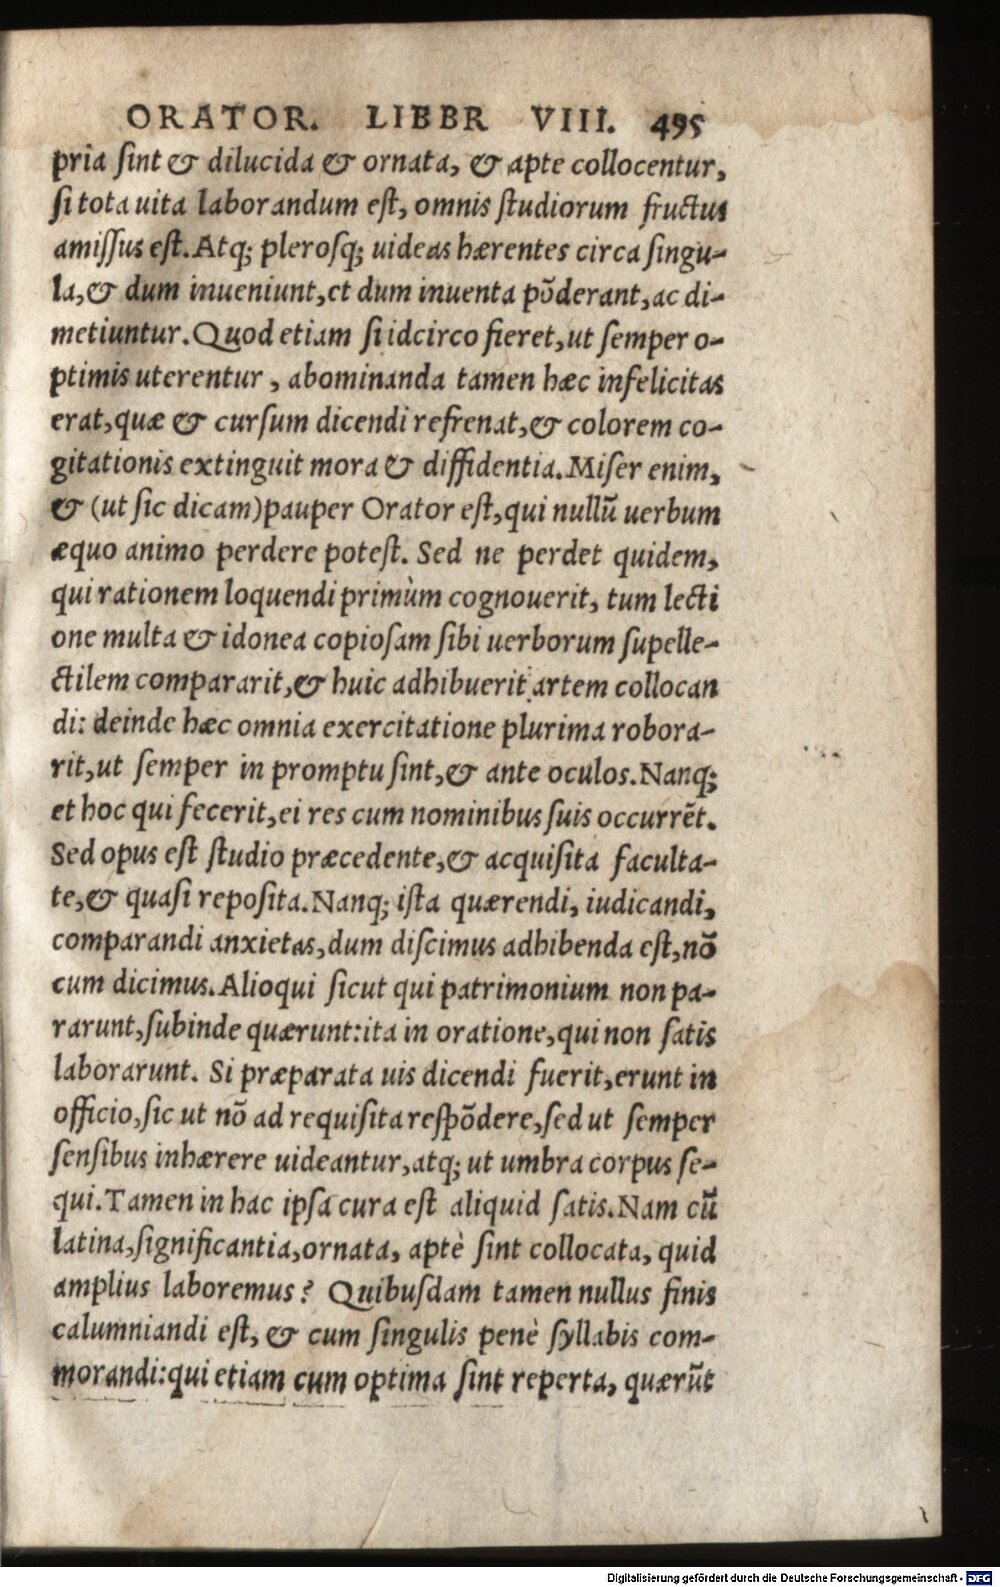 ORATOR. LIBBR VIII. 495
pria sint & dilucida & ornata, & apte collocentur,
si tota uita laborandum est, omnis studiorum fructus
amissus est. Atq; plerosq; uideas hærentes circa singu-
la, & dum inueniunt, et dum inuenta põderant, ac di-
metiuntur. Quod etiam si idcirco fieret, ut semper o-
ptimis uterentur, abominanda tamen hæc infelicitas
erat, quæ & cursum dicendi refrenat, & colorem co-
gitationis extinguit mora & diffidentia. Miser enim,
& (ut sic dicam) pauper Orator est, qui nullũ uerbum
æquo animo perdere potest. Sed ne perdet quidem,
qui rationem loquendi primùm cognouerit, tum lecti
one multa & idonea copiosam sibi uerborum supelle-
ctilem compararit, & huic adhibuerit artem collocan
di: deinde hæc omnia exercitatione plurima robora-
rit, ut semper in promptu sint, & ante oculos. Nanq;
et hoc qui fecerit, ei res cum nominibus suis occurrẽt.
Sed opus est studio præcedente, & acquisita faculta-
te, & quasi reposita. Nanq; ista quærendi, iudicandi,
comparandi anxietas, dum discimus adhibenda est, nõ
cum dicimus. Alioqui sicut qui patrimonium non pa-
rarunt, subinde quærunt: ita in oratione, qui non satis
laborarunt. Si præparata uis dicendi fuerit, erunt in
officio, sic ut nõ ad requisita respõdere, sed ut semper
sensibus inhærere uideantur, atq; ut umbra corpus se-
qui. Tamen in hac ipsa cura est aliquid satis. Nam cũ
latina, significantia, ornata, aptè sint collocata, quid
amplius laboremus? Quibusdam tamen nullus finis
calumniandi est, & cum singulis penè syllabis com-
morandi: qui etiam cum optima sint reperta, quærũt
Digitalisierung gefördert durch die Deutsche Forschungsgemeinschaft - DFG